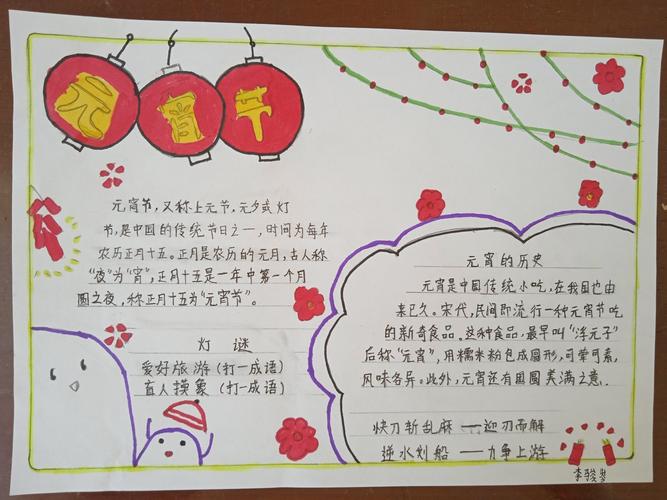 元宵节
元宵节,又称上元节,元夕或灯
节,是中国的传统节日之一,时间为每年
农历正月十五。正月是农历的元月,古人称
“夜”为“宵”,正月十五是一年中第一个月
圆之夜,称正月十五为“元宵节”。
灯谜
爱好旅游(打一成语)
盲人摸象(打一成语)
元宵的历史
元宵是中国传统小吃,在我国也由
来已久。宋代,民间即流行一种元宵节吃
的新奇食品。这种食品,最早叫“浮元子”
后称“元宵”,用糯米粉包成圆形,可荤可素,
风味各异。此外,元宵还有团圆美满之意.
快刀斩乱麻——迎刃而解
逆水划船——力争上游
李骏